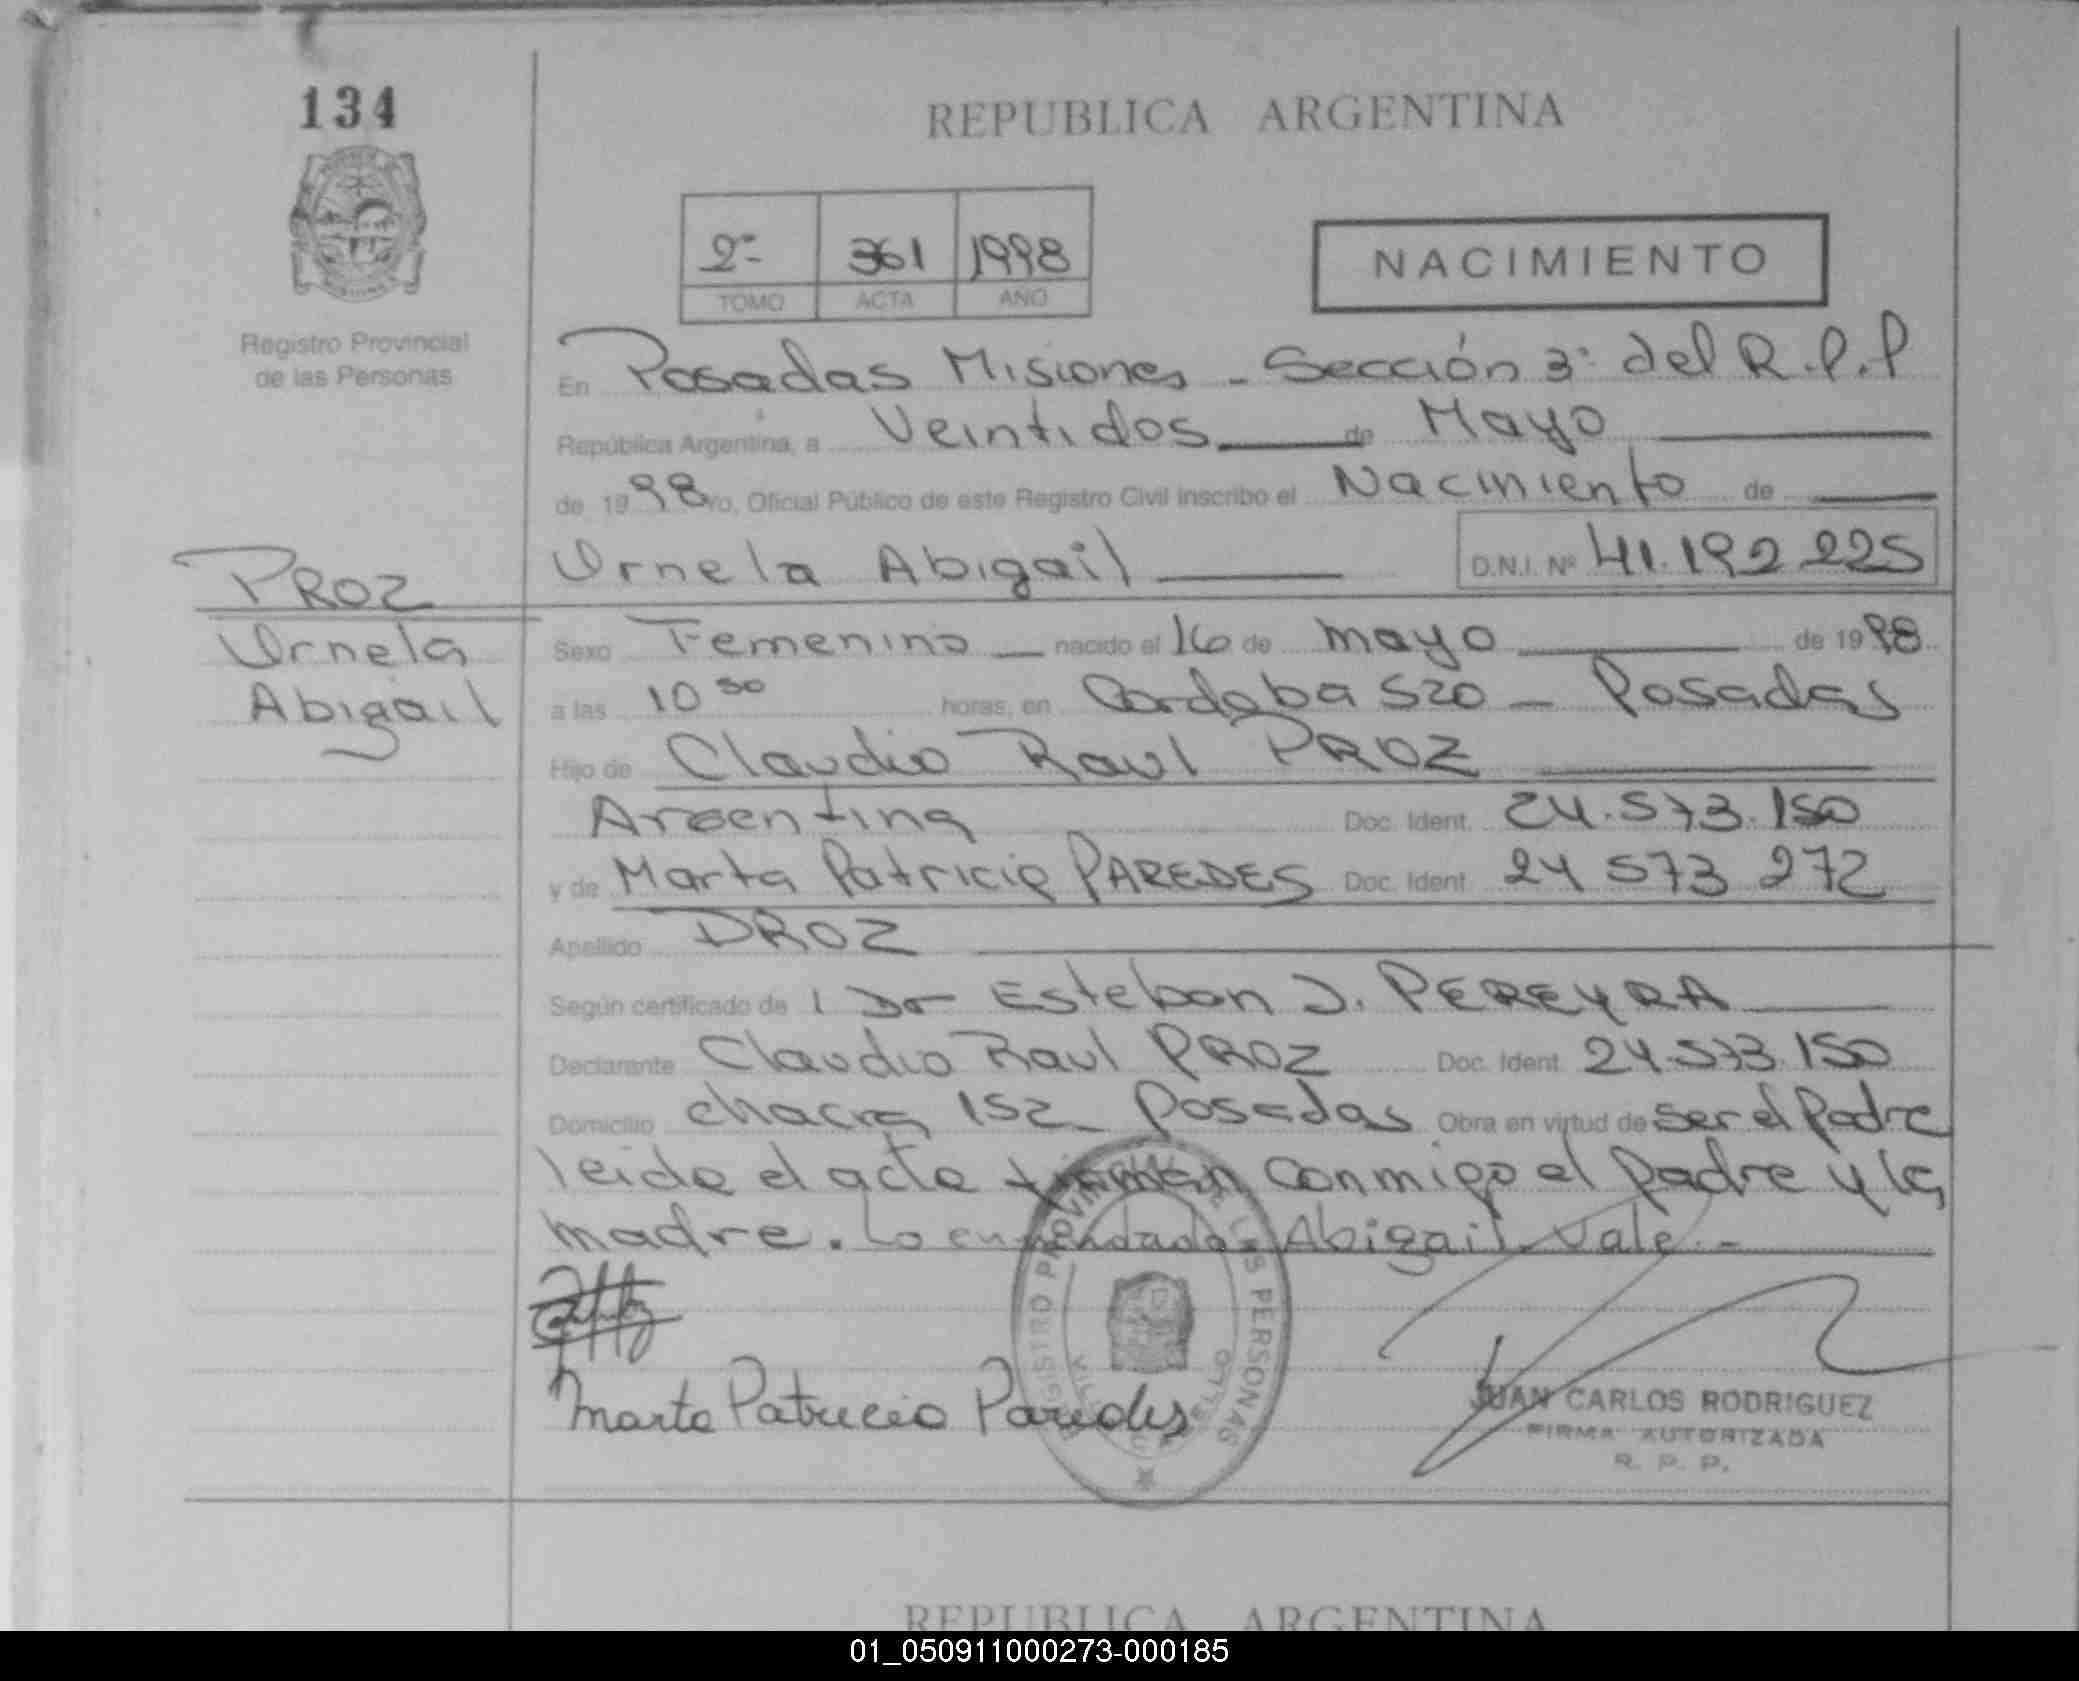 134
REPUBLICA ARGENTINA
2º 361 1998
TOMO ACTA AÑO
NACIMIENTO
Registro Provincial
de las Personas
En Posadas Misiones - Sección 3º del R.P.P
República Argentina, a Veintidos de Mayo
de 1998 Yo, Oficial Público de este Registro Civil inscribo el Nacimiento de
Ornela Abigail D.N.I. Nº 41.192.225
PROZ
Ornela
Abigail
Sexo Femenino nacido el 16 de mayo de 1998
a las 10 30 horas, en Cordoba 520 - Posadas
Hijo de Claudio Raul PROZ
Argentina Doc. Ident. 24.573.150
y de Marta Patricia PAREDES Doc. Ident. 24 573 272
Apellido PROZ
Según certificado de 1 Dr Esteban J. PEREYRA
Declarante Claudio Raul PROZ Doc. Ident. 24.573.150
Domicilio chacra 152 - Posadas Obra en virtud de ser el Padre
leida el acta firman conmigo el padre y la
madre. Lo enmendado: Abigail. Vale.-
Marta Patricia Paredes
REGISTRO PROVINCIAL DE LAS PERSONAS
JUAN CARLOS RODRIGUEZ
FIRMA AUTORIZADA
R. P. P.
REPUBLICA ARGENTINA
01_050911000273-000185